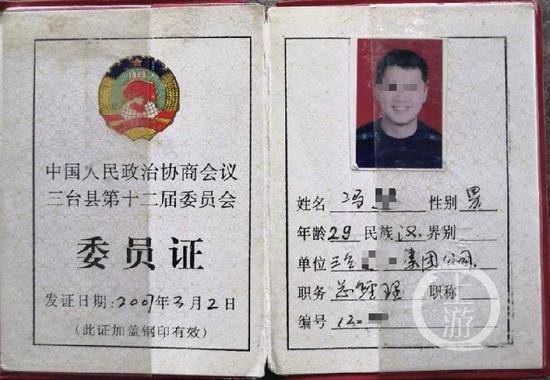 中国人民政治协商会议
三台县第十二届委员会
委员证
发证日期：2007年3月2日
（此证加盖钢印有效）
姓名 冯 性别 男
年龄 29 民族 汉 界别
单位 三台 集团公司
职务 总经理 职称
编号 12-
上游